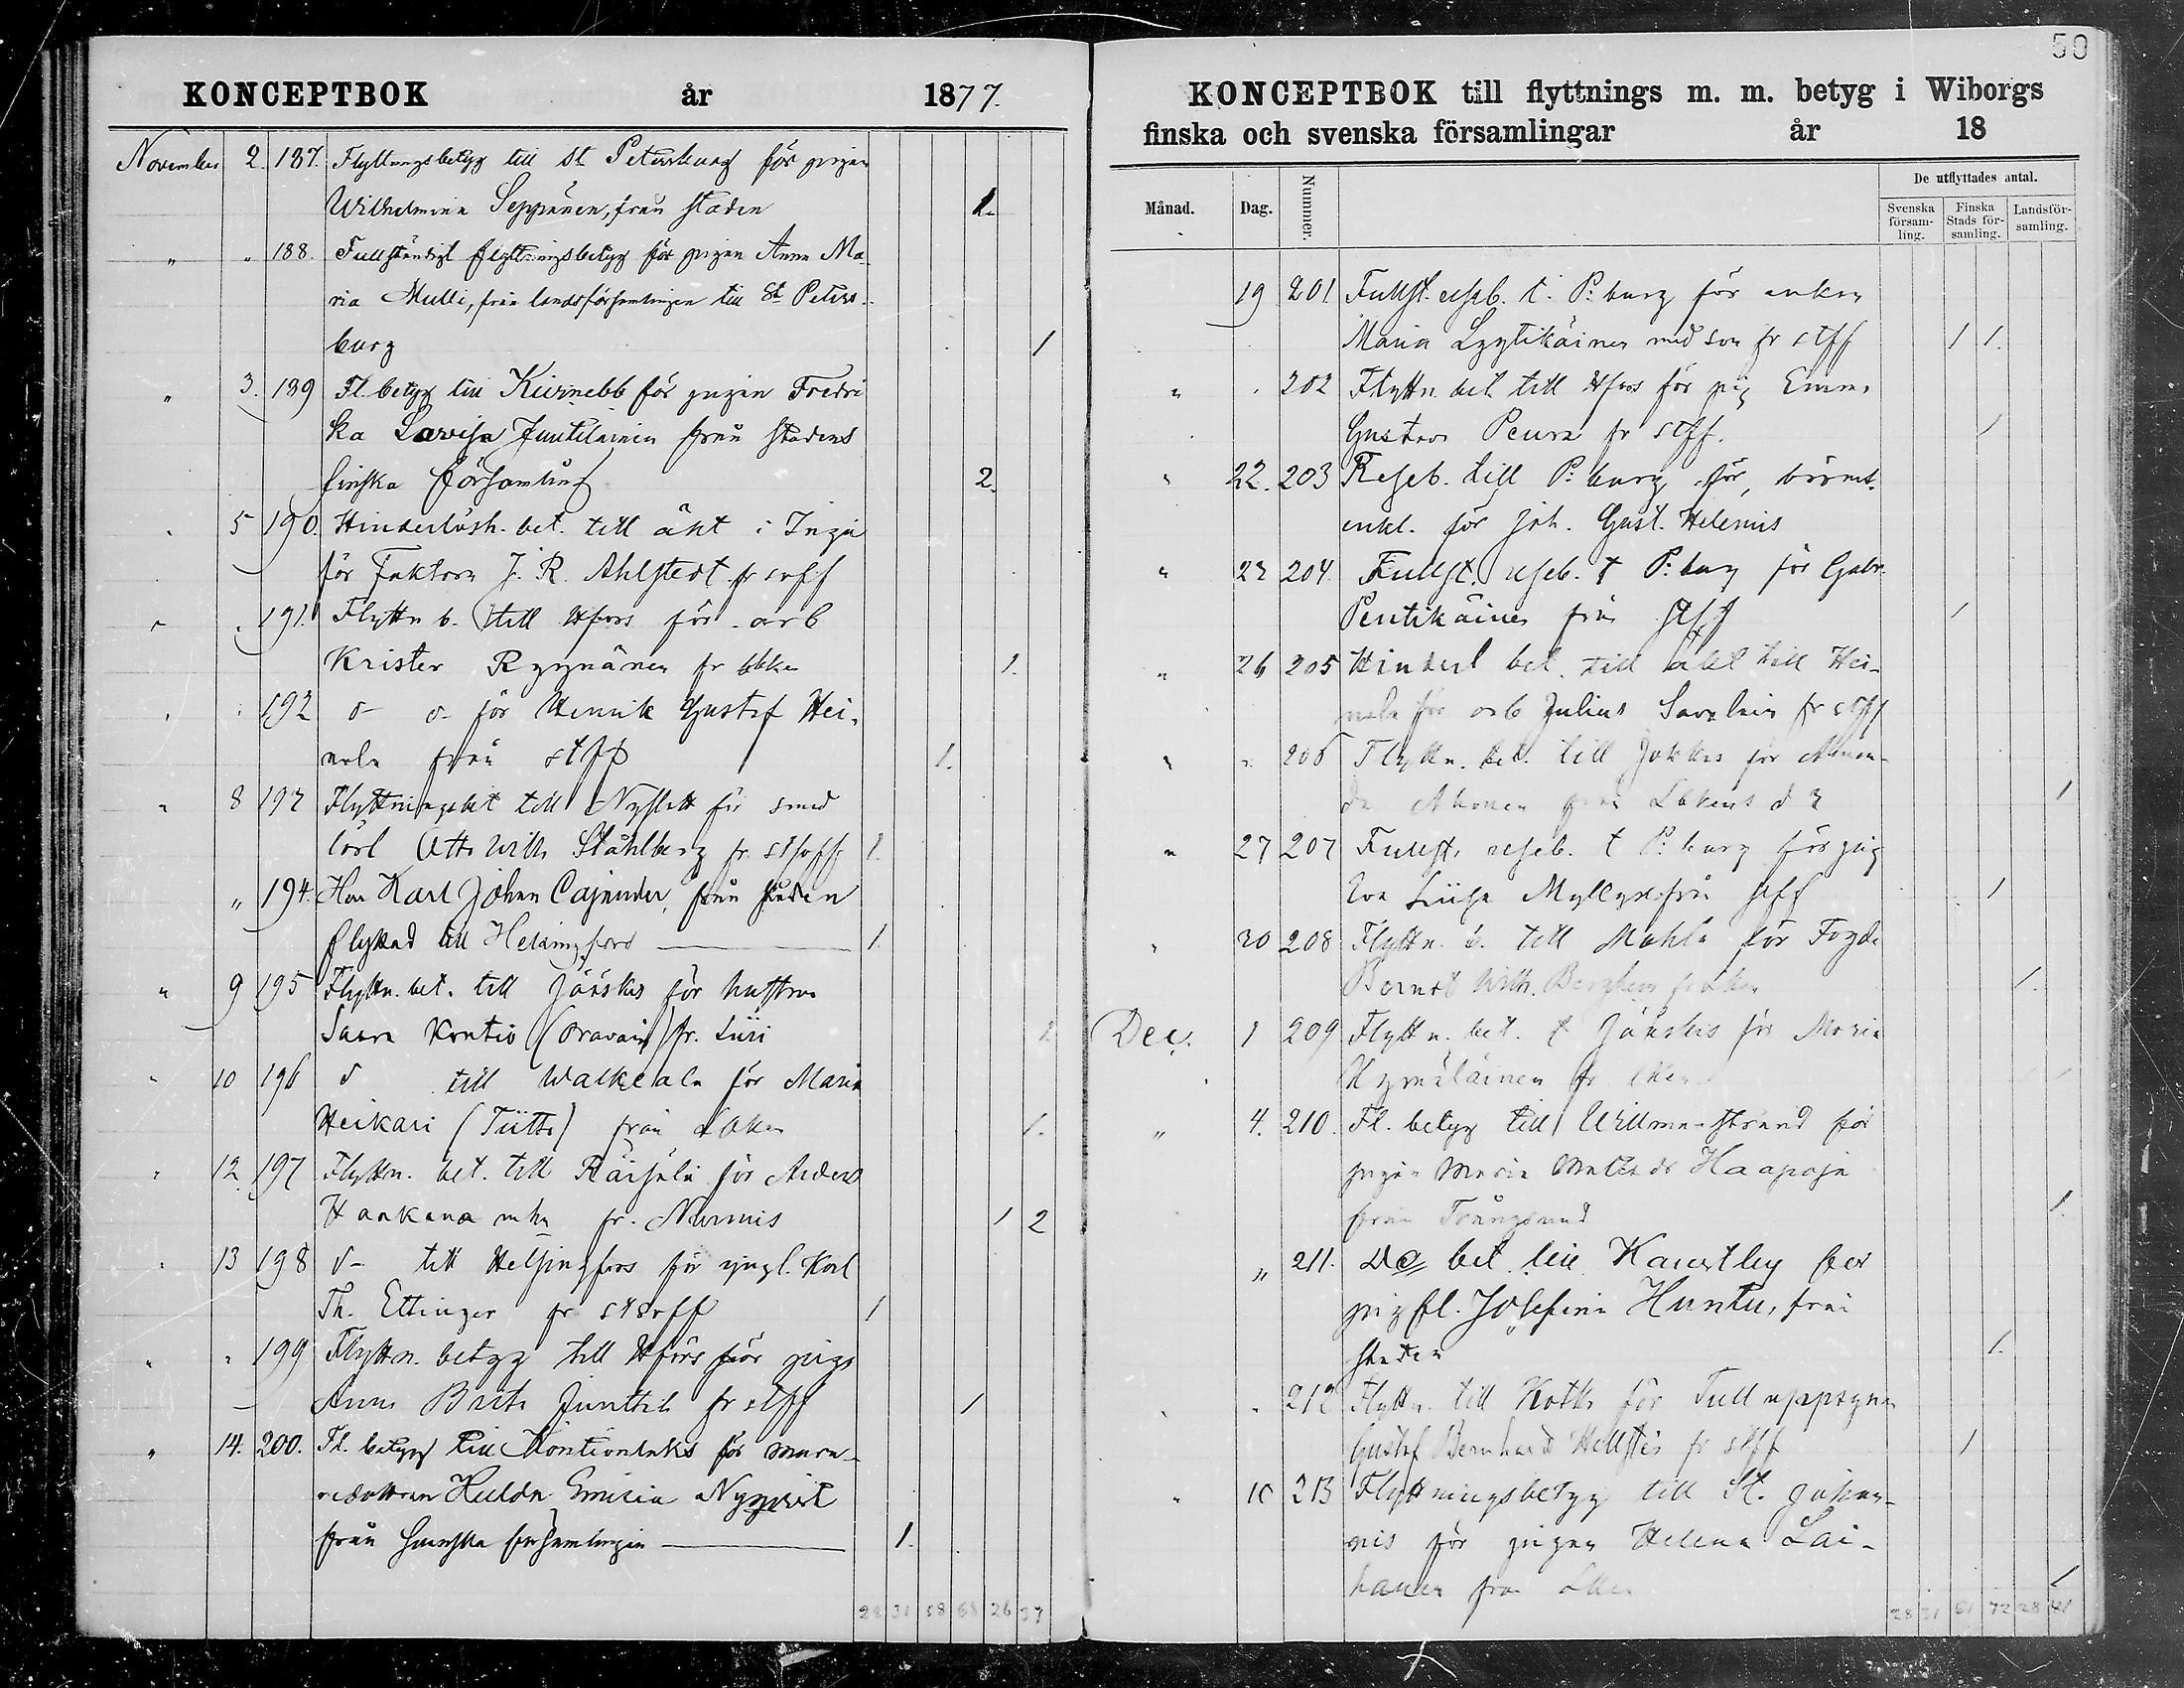 KONCEPTBOK år 1877.
November 2. 187. Flyttningsbetyg till St Petersburg för pigan
Wilhelmina Seppänen, från staden 1.
" " 188. Fullständigt flyttningsbetyg för pigan Anna Ma-
ria Mulli, från landsförsamlingen till St Peters-
burg 1
" 3. 189 Fl. betyg till Kivinebb för pigan Fredri
ka Lovisa Juutilainen från stadens
finska församling 2.
" 5 190. Hinderlösh. bet. till äkt i Ingå
för Faktorn J. R. Ahlstedt fr svff
" " 191. Flyttn b. till Hfors för arb
Krister Ryynänen fr Lka 1.
" " 192 d- o- för Henrik Gustaf Hei-
nola från stff 1.
" 8 193 Flyttningsbet till Nyslott för smed
lärl Otto Wilh Ståhlberg fr stsvff 1.
" 194. Har Karl Johan Cajander, från staden
flyttad till Helsingfors 1.
" 9 195 Flyttn. bet. till Jääskis för hustrun
Saara Kontio (Oravain) fr. Liiri 1
" 10 196 d till Walkeala för Maria
Heikari (Tiitto) från Lken 1.
" 12 197 Flyttn. bet. till Räisälä för Anders
Hankana mhu fr. Nurmis 1 2
" 13 198 d- till Helsingfors för yngl. Karl
Th. Ettinger fr stsvff 1
" " 199 Flyttn. betyg till Hfors för piga
Anna Brita Junttila fr stff 1
" 14. 200. Fl. betyg till Kontiolaks för
Hulda Emilia Nyqvist
från svenska församlingen 1.
28 31 58 68 26 37
50
KONCEPTBOK till flyttnings m. m. betyg i Wiborgs
finska och svenska församlingar år 18
Månad. Dag. Nummer. De utflyttades antal.
Svenska försam- ling. Finska Stads för- samling. Landsför- samling.
19 201 Fullst. reseb. t. P:burg för enkan
Maria Lyytikäinen med son fr stff 1 1.
" " 202 Flyttn. bet. till Hfors för pig Emma
Gustava Peura fr stff. 1
" 22. 203 Reseb. till P:burg för
enkl. för Joh. Gust. Helenius
" 23 204. Fullst. reseb. t P:burg för Gabr.
Pentikäinen från stff 1
" 26 205 Hinderl bet. till äkt till Hei-
nola för arb Julius Savolain fr stff
" " 206 Flyttn. bet. till Jokkas för Aman-
da Ahonen från Lkens d 1
" 27 207 Fullst. reseb. t P:burg för pig
Eva Liisa Myllyn från stff 1
" 30 208 Flyttn. b. till Mohla för Fogde
Berndt Wilh. fr Lken 1.
Dec. 1 209 Flyttn. bet. t Jääskis för Maria
Kymäläinen fr Lken 1
" 4. 210. Fl. betyg till Willmanstrand för
pigan Maria Matilda Haapoja
från Trångsund 1.
" 211. Do bet till för
pig fl. Josefina Huntu, från
staden 1.
" " 212 Flyttn. till Kotka för Tulluppsynm
Gustaf Bernhard Hellstén fr stff 1
" 10 213 Flyttningsbetyg till St. Johan-
nis för pigan Helena Lai-
hanen från Lken 1
28 31 61 72 28 41